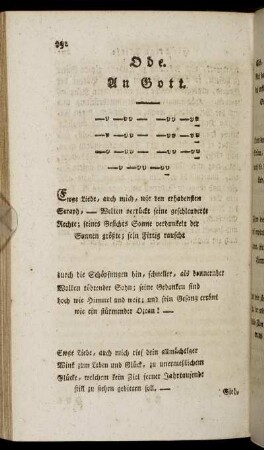 Ode.
An Gott.
Ewge Liebe, auch mich, wie den erhabensten
Seraph, — Welten verrückt seine geschleuderte
Rechte; seines Gesichts Sonne verdunkelt der
Sonnen größte; sein Fittig rauscht
durch die Schöpfungen hin, schneller, als donnernder
Wolken tödtender Sohn; seine Gedanken sind
hoch wie Himmel und weit; und sein Gesang ertönt
wie ein stürmender Ozean! —
Ewge Liebe, auch mich rief dein allmächtiger
Wink zum Leben und Glück, zu unermeßlichem
Glücke, welchem kein Ziel ferner Jahrtausende
still zu stehen gebieten soll. —